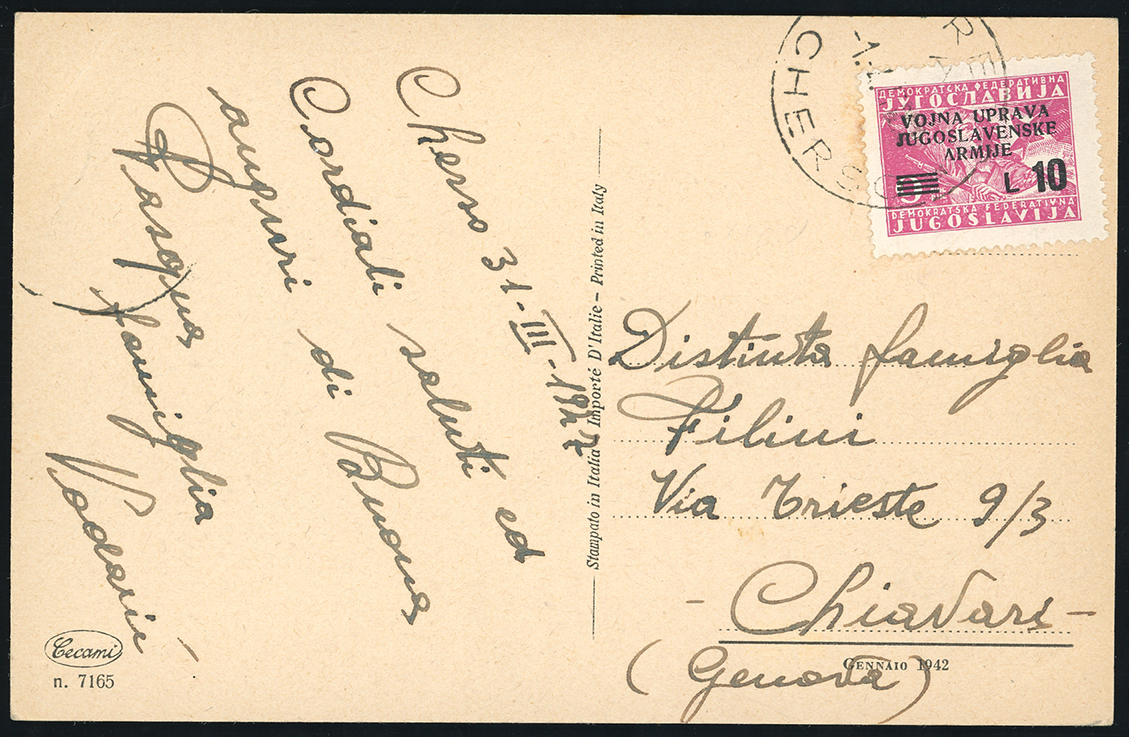 Cherso 31-III-1947
Cordiali saluti ed
auguri di Buona
Pasqua
famiglia
Vodarič
Cecami
n. 7165
Stampato in Italia - Importé D'Italie - Printed in Italy
CHERSO
ДЕМОКРАТСКА ФЕДЕРАТИВНА
ЈУГОСЛАВИЈА
VOJNA UPRAVA
JUGOSLAVENSKE
ARMIJE
L 10
DEMOKRATSKA FEDERATIVNA
JUGOSLAVIJA
Distinta famiglia
Filini
Via Trieste 9/3
- Chiavari -
GENNAIO 1942
(Genova)